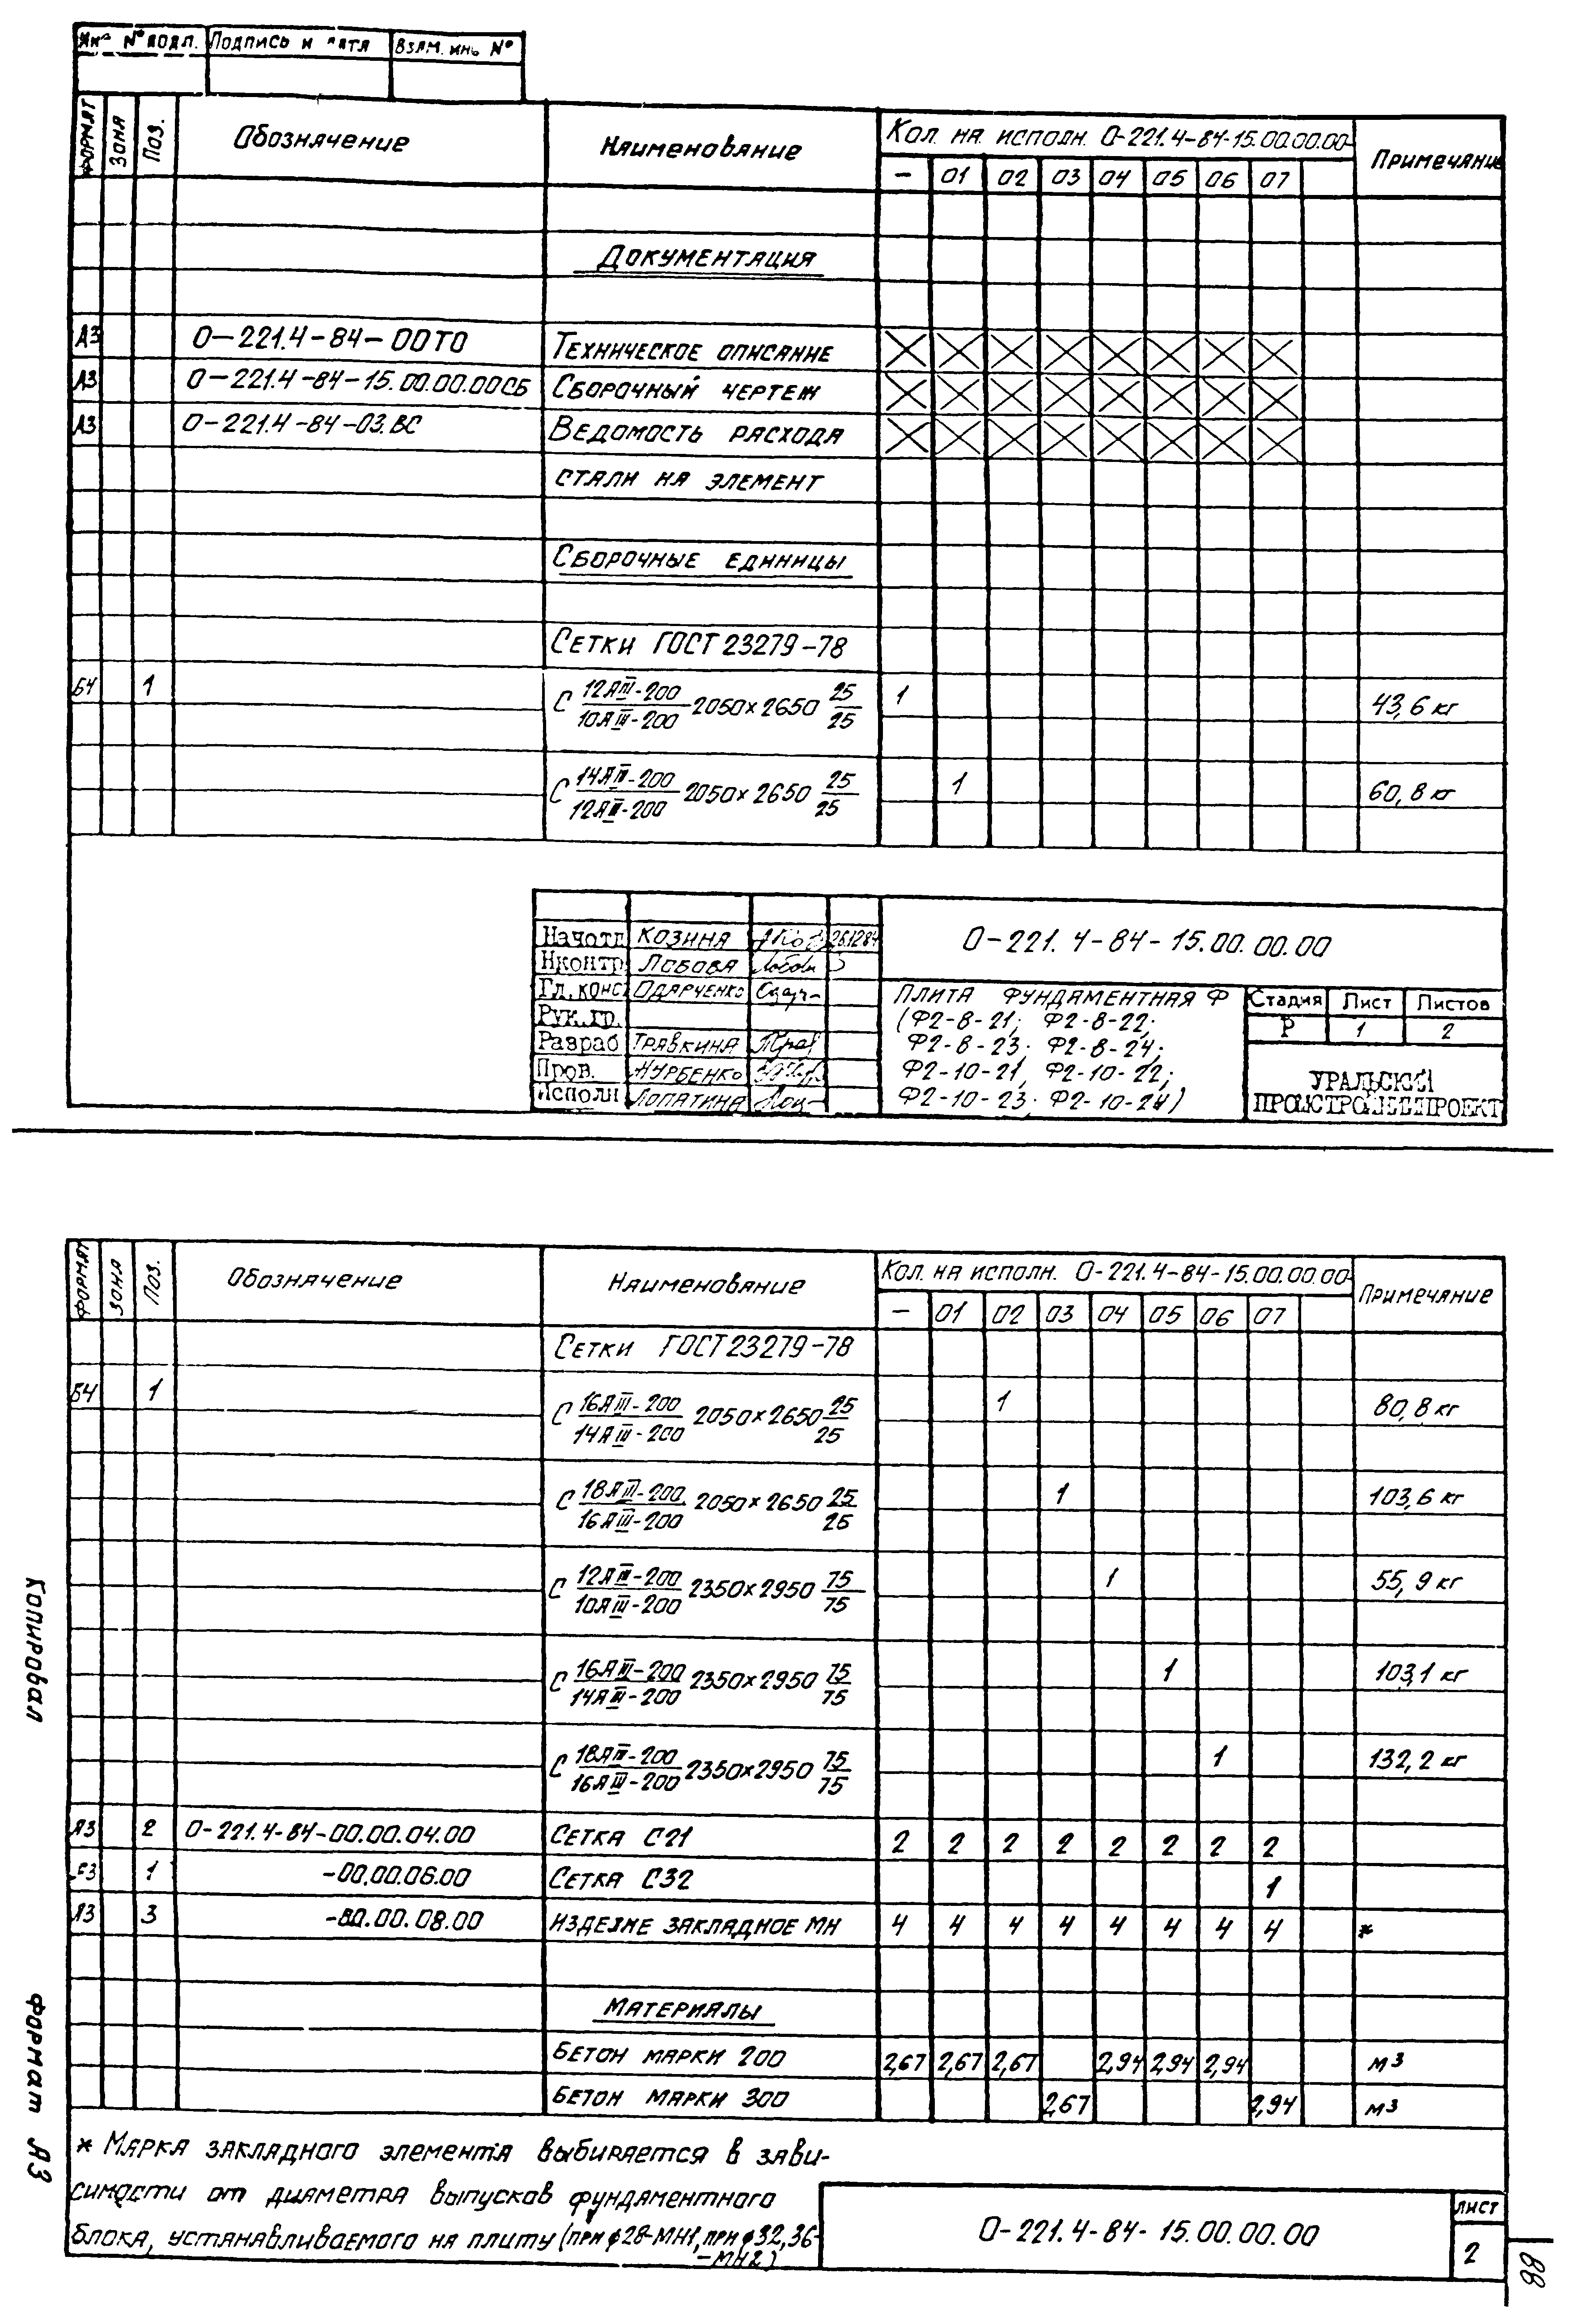 Инв № подл. Подпись и дата Взам. инв №
Формат Зона Поз. Обозначение Наименование Кол. на исполн. О-221.4-84-15.00.00.00- Примечание
— 01 02 03 04 05 06 07
Документация
А3 О-221.4-84-00ТО Техническое описание
А3 О-221.4-84-15.00.00.00СБ Сборочный чертеж
А3 О-221.4-84-03.ВС Ведомость расхода
стали на элемент
Сборочные единицы
Сетки ГОСТ 23279-78
БЧ 1 С 12АIII-200/10АIII-200 2050×2650 25/25 1 43,6 кг
С 14АIII-200/12АIII-200 2050×2650 25/25 1 60,8 кг
О-221.4-84-15.00.00.00
Нач отд Козина 26.12.84
Н контр Лобова
Гл. конс Одарченко
Рук. гр.
Разраб Травкина
Пров. Нурбенко
Исполн Лопатина
Плита фундаментная Ф
(Ф2-8-21; Ф2-8-22;
Ф2-8-23; Ф2-8-24;
Ф2-10-21, Ф2-10-22;
Ф2-10-23; Ф2-10-24)
Стадия Лист Листов
Р 1 2
УРАЛЬСКИЙ
ПРОМСТРОЙНИИПРОЕКТ
Формат Зона Поз. Обозначение Наименование Кол. на исполн. О-221.4-84-15.00.00.00- Примечание
— 01 02 03 04 05 06 07
Сетки ГОСТ 23279-78
БЧ 1 С 16АIII-200/14АIII-200 2050×2650 25/25 1 80,8 кг
С 18АIII-200/16АIII-200 2050×2650 25/25 1 103,6 кг
С 12АIII-200/10АIII-200 2350×2950 75/75 1 55,9 кг
С 16АIII-200/14АIII-200 2350×2950 75/75 1 103,1 кг
С 18АIII-200/16АIII-200 2350×2950 75/75 1 132,2 кг
А3 2 О-221.4-84-00.00.04.00 Сетка С21 2 2 2 2 2 2 2 2
А3 1 -00.00.06.00 Сетка С32 1
А3 3 -00.00.08.00 Изделие закладное МН 4 4 4 4 4 4 4 4 *
Материалы
Бетон марки 200 2,67 2,67 2,67 2,94 2,94 2,94 м3
Бетон марки 300 2,67 2,94 м3
* Марка закладного элемента выбирается в зави-
симости от диаметра выпусков фундаментного
блока, устанавливаемого на плиту (при ф28-МН1, при ф32,36-
-МН2)
О-221.4-84-15.00.00.00
Лист
2
Копировал
Формат А3
88